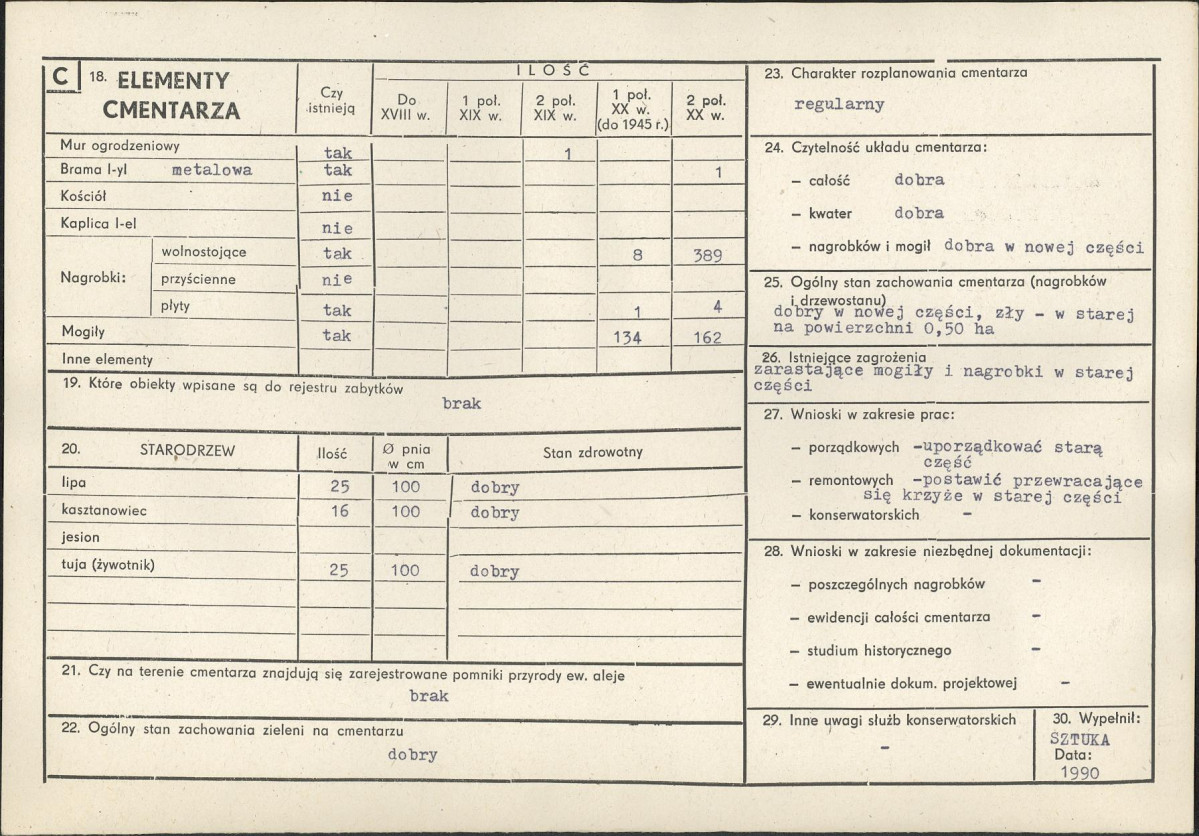 C 18. ELEMENTY CMENTARZA
Czy istnieją
ILOŚĆ
Do XVIII w.
1 poł. XIX w.
2 poł. XIX w.
1 poł. XX w. (do 1945 r.)
2 poł. XX w.
Mur ogrodzeniowy tak 1
Brama l-yl metalowa tak 1
Kościół nie
Kaplica l-el nie
Nagrobki:
wolnostojące tak 8 389
przyścienne nie
płyty tak 1 4
Mogiły tak 134 162
Inne elementy
19. Które obiekty wpisane są do rejestru zabytków
brak
20. STARODRZEW Ilość Ø pnia w cm Stan zdrowotny
lipa 25 100 dobry
kasztanowiec 16 100 dobry
jesion
tuja (żywotnik) 25 100 dobry
21. Czy na terenie cmentarza znajdują się zarejestrowane pomniki przyrody ew. aleje
brak
22. Ogólny stan zachowania zieleni na cmentarzu
dobry
23. Charakter rozplanowania cmentarza
regularny
24. Czytelność układu cmentarza:
– całość dobra
– kwater dobra
– nagrobków i mogił dobra w nowej części
25. Ogólny stan zachowania cmentarza (nagrobków
i drzewostanu)
dobry w nowej części, zły - w starej
na powierzchni 0,50 ha
26. Istniejące zagrożenia
zarastające mogiły i nagrobki w starej
części
27. Wnioski w zakresie prac:
– porządkowych -uporządkować starą
część
– remontowych -postawić przewracające
się krzyże w starej części
– konserwatorskich -
28. Wnioski w zakresie niezbędnej dokumentacji:
– poszczególnych nagrobków -
– ewidencji całości cmentarza -
– studium historycznego -
– ewentualnie dokum. projektowej -
29. Inne uwagi służb konserwatorskich
-
30. Wypełnił:
SZTUKA
Data:
1990